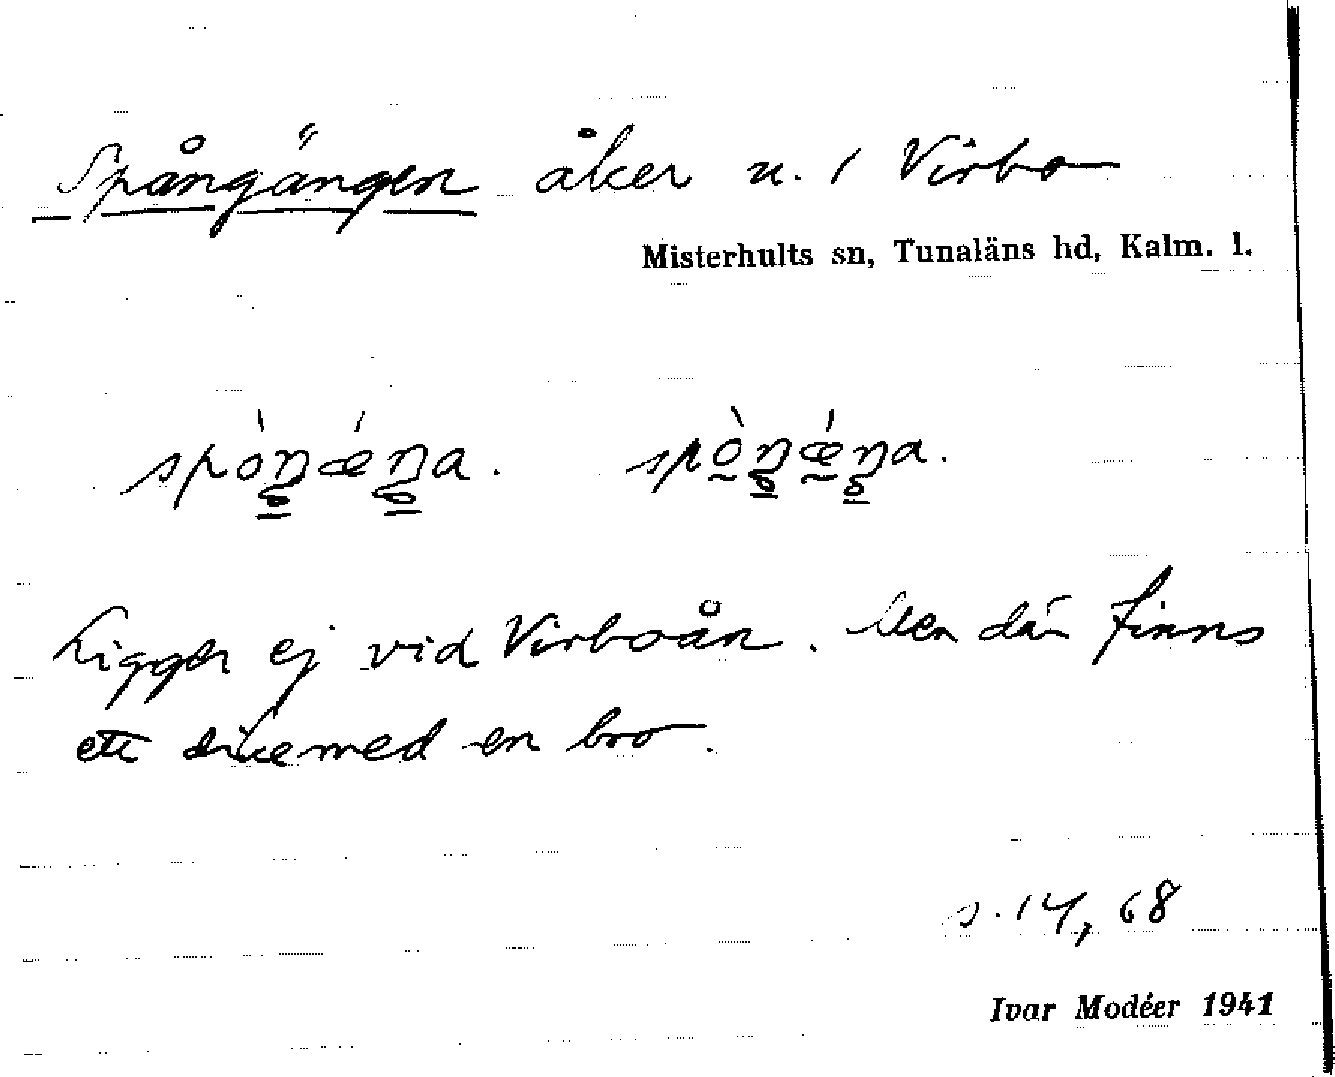 Spångängen åker u. 1 Virbo
Misterhults sn, Tunaläns hd, Kalm. l.
spòŋæ´ŋa. spòŋæ´ŋa.
Ligger ej vid Virboån. Men där finns
ett dike med en bro.
s. 14, 68
Ivar Modéer 1941